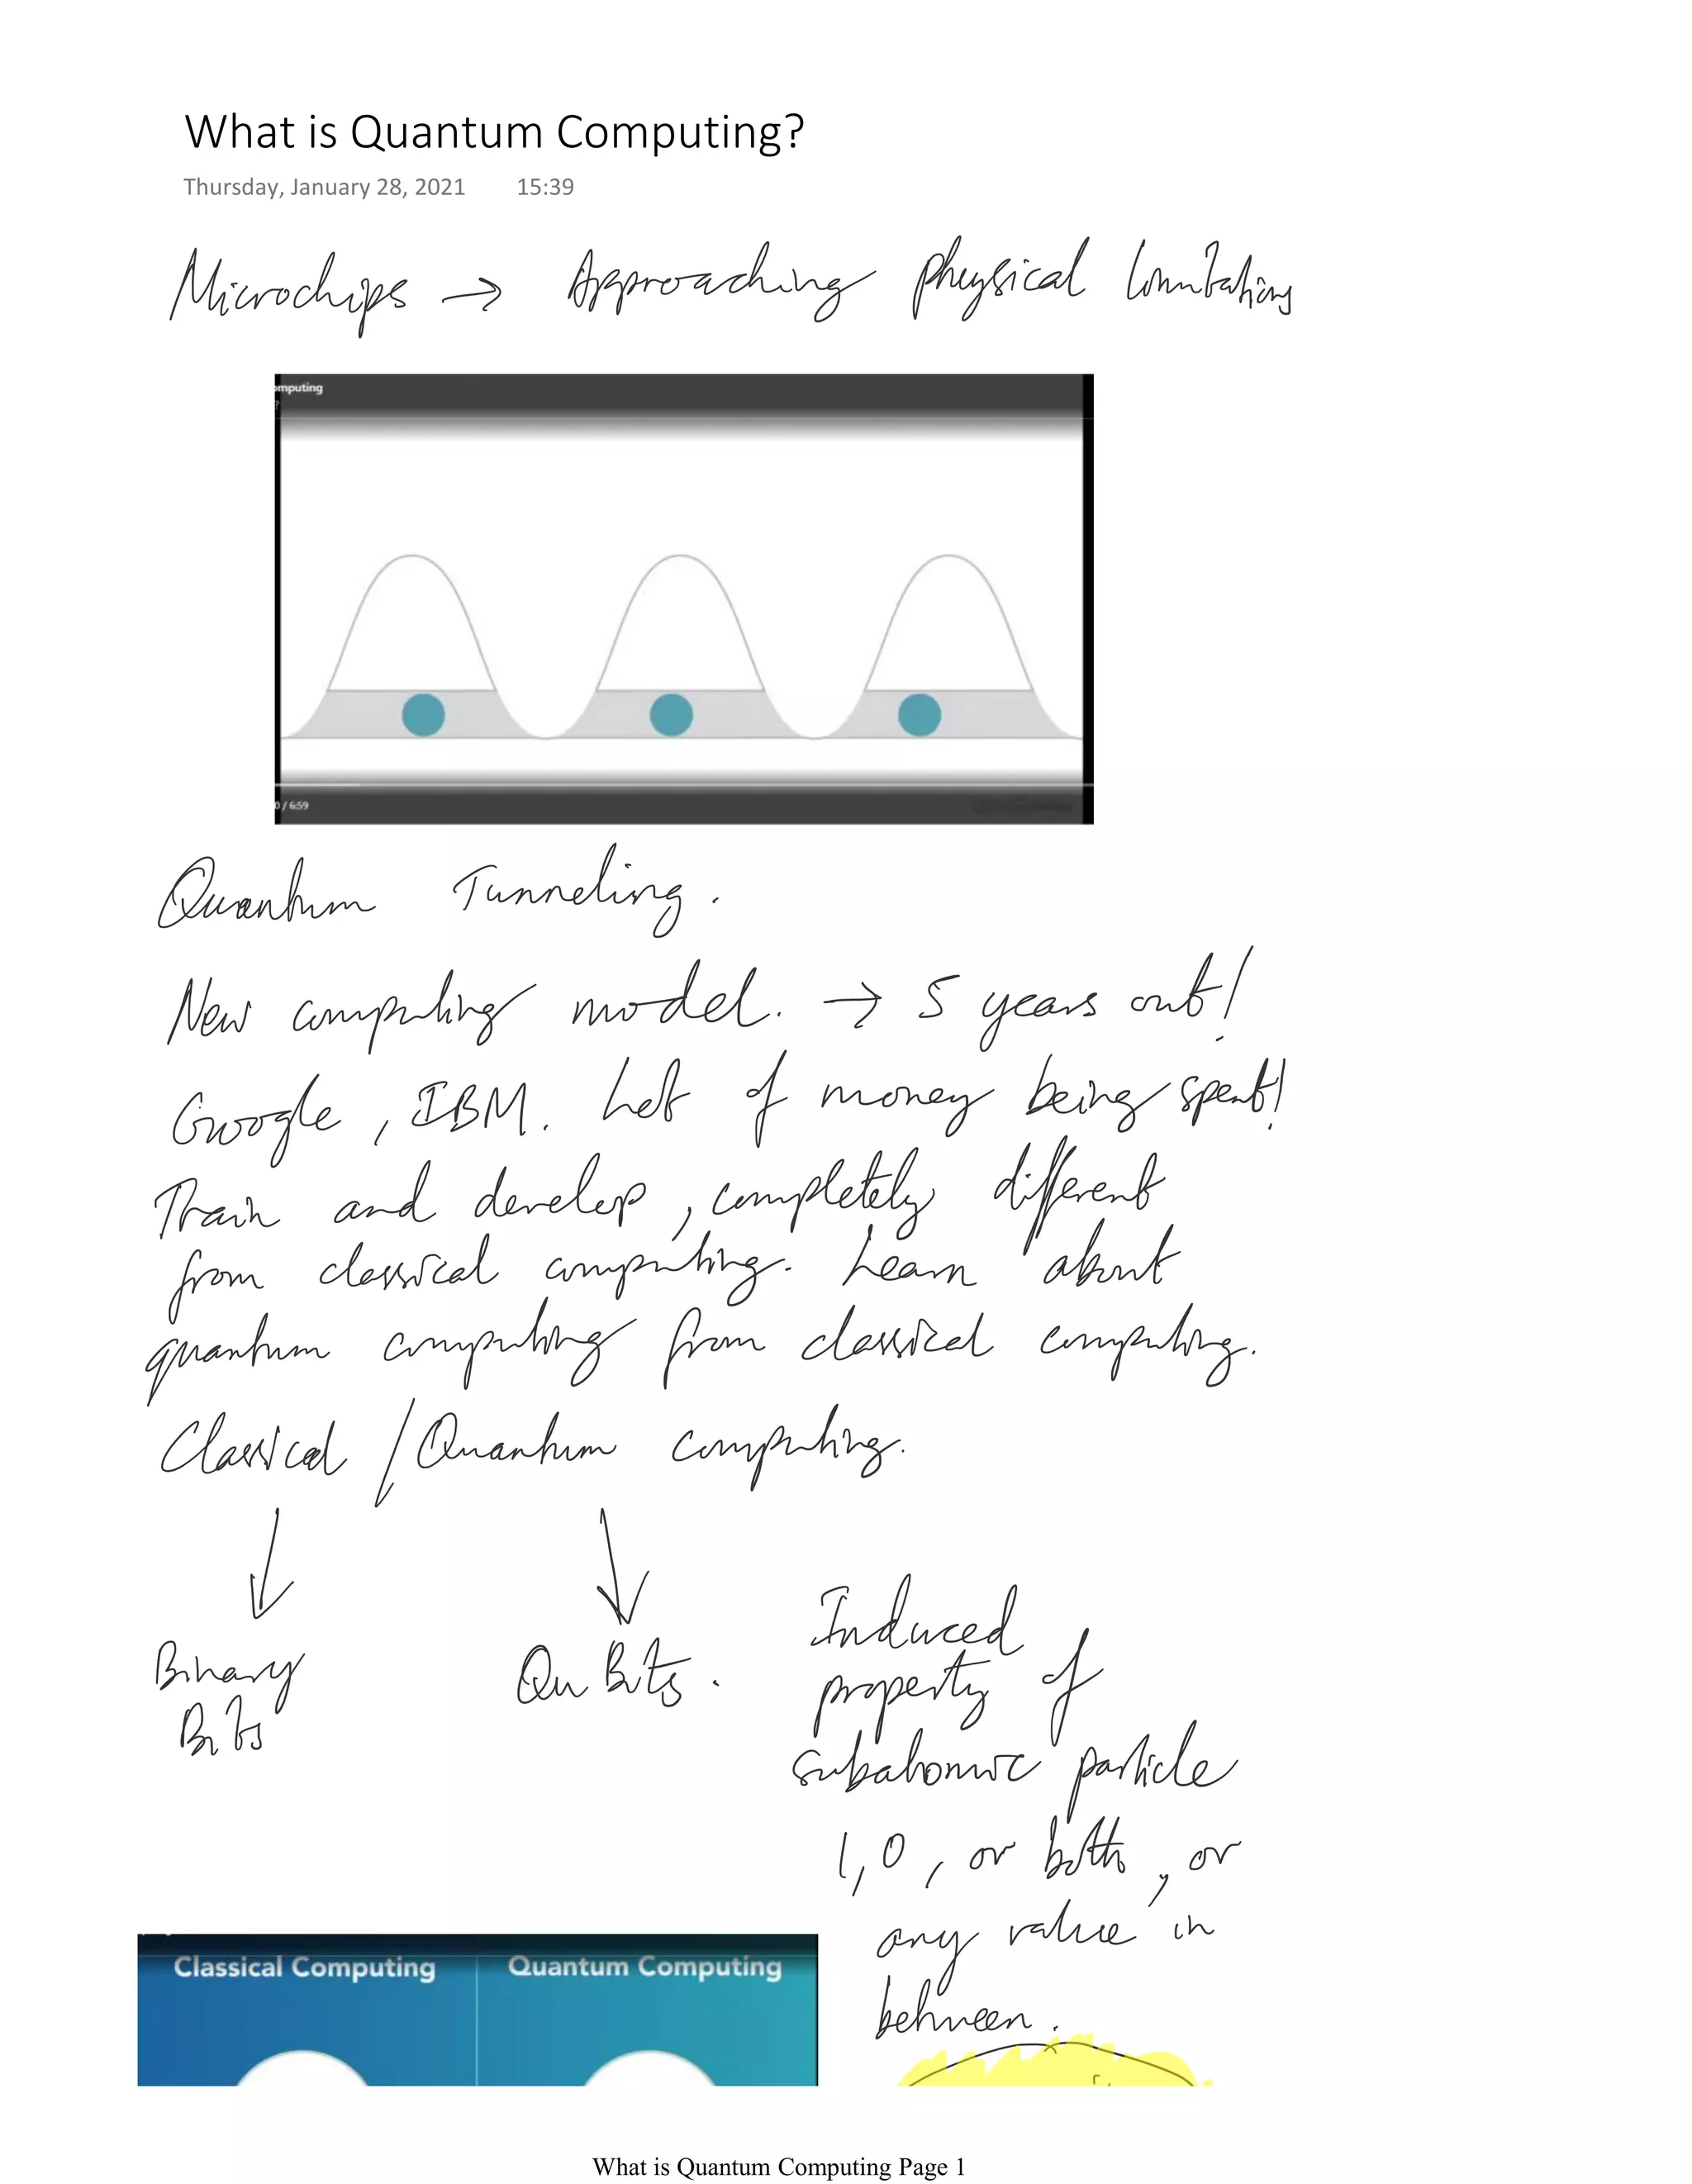 What is Quantum Computing?
Thursday, January 28, 2021 15:39
Microchips → Approaching physical limitations
omputing
?
0 / 6:59
Quantum Tunneling.
New computing model. → 5 years out!
Google, IBM. Lot of money being spent!
Train and develop, completely different
from classical computing. Learn about
quantum computing from classical computing.
Classical / Quantum computing.
Binary
Bits
QuBits.
Induced
property of
subatomic particle
1, 0, or both, or
any value in
between.
Classical Computing Quantum Computing
What is Quantum Computing Page 1